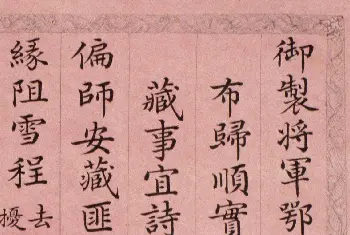 御製將軍鄂
布歸順實
藏事宜詩
偏師安藏匪
緣阻雪程去擾